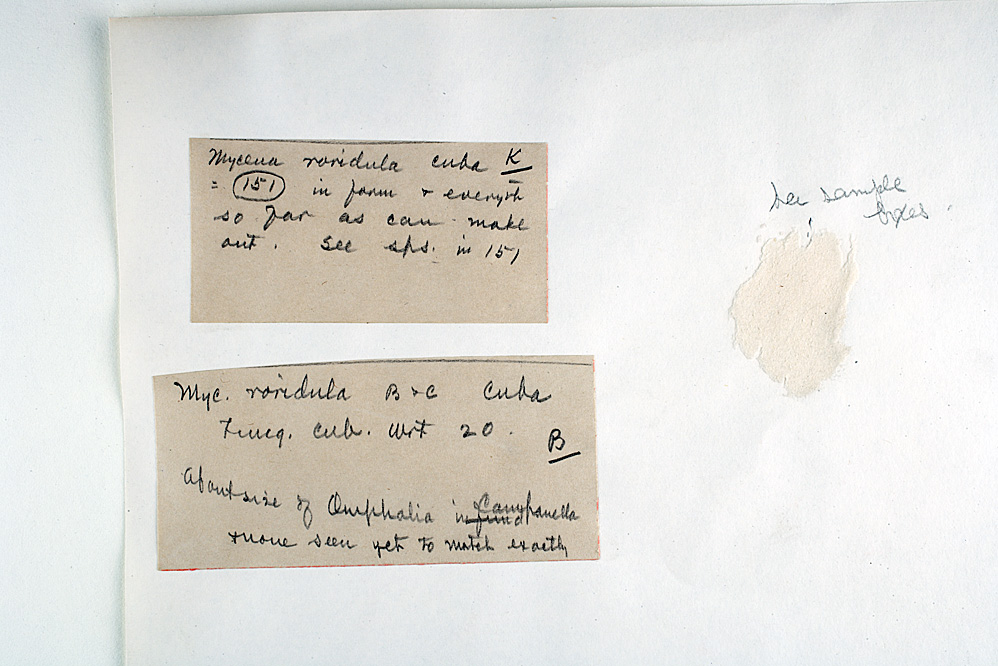 Mycena roridula Cuba K
= 151 in form + everyth
so far as can make
out. See sps. in 151
See sample
boxes
Myc. roridula B+C Cuba
Fung. cub. Wrt 20.
B
About size of Omphalia Campanella
+ none seen yet to match exactly